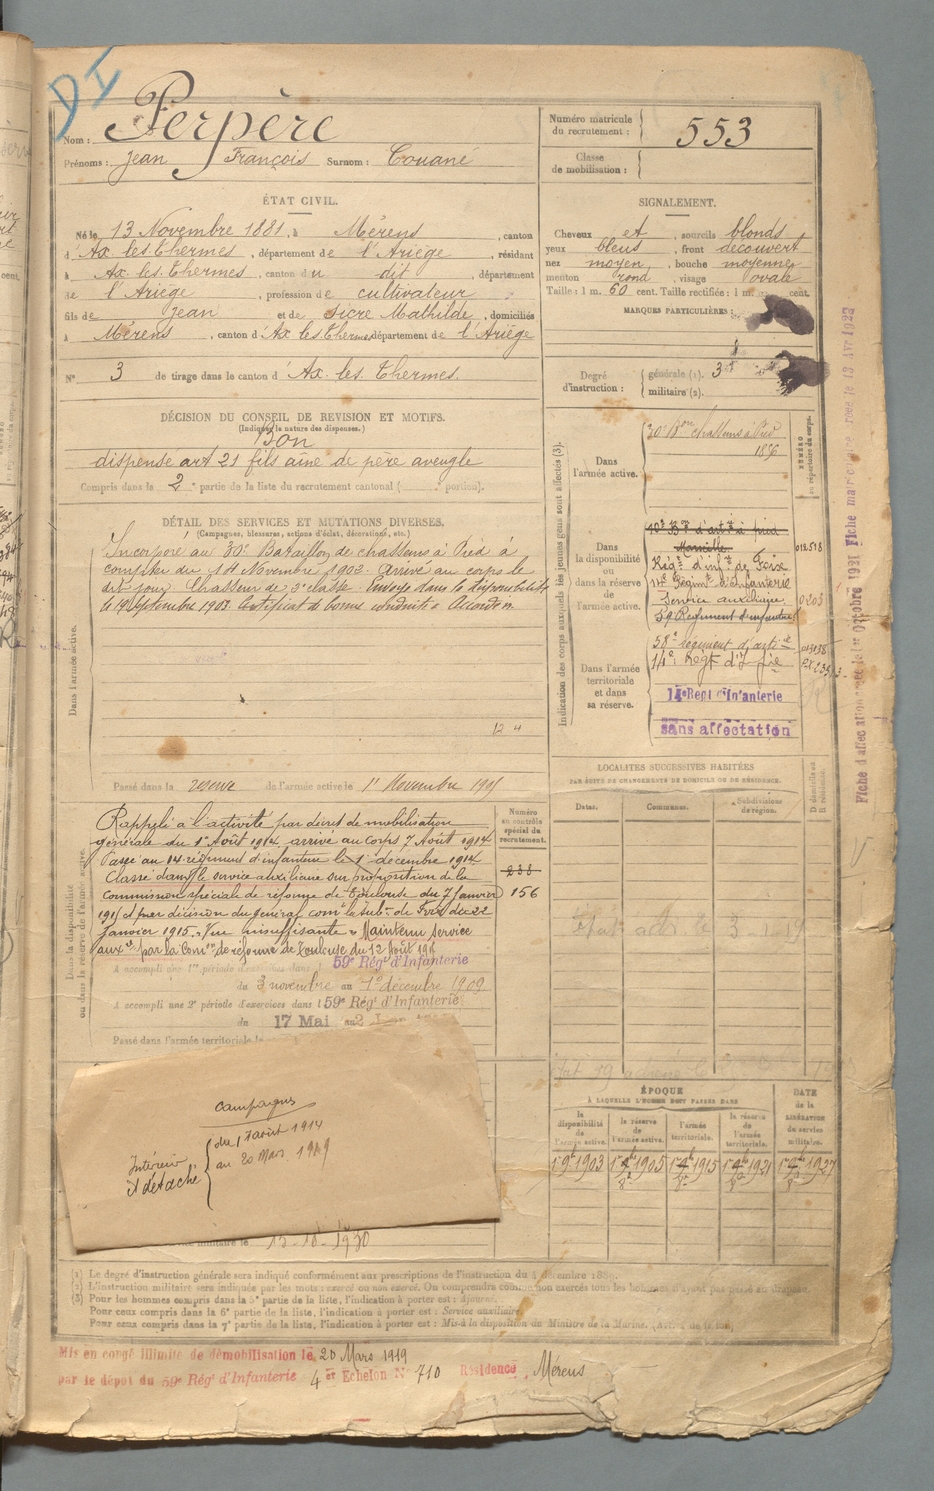 DI
Nom : Perpère
Prénoms : Jean François Surnom : Couané
Numéro matricule du recrutement : 553
Classe de mobilisation :
ÉTAT CIVIL.
Né le 13 Novembre 1881, à Mérens, canton
d'Ax les Thermes, département de l'Ariège, résidant
à Ax les Thermes, canton du dit, département
de l'Ariège, profession de cultivateur
fils de Jean et de Sicre Mathilde, domiciliés
à Mérens, canton d'Ax les Thermes, département de l'Ariège
N° 3 de tirage dans le canton d'Ax les Thermes.
SIGNALEMENT.
Cheveux et sourcils blonds
yeux bleus, front découvert
nez moyen, bouche moyenne
menton rond, visage ovale
Taille : 1 m. 60 cent. Taille rectifiée : 1 m. cent.
MARQUES PARTICULIÈRES :
Degré d'instruction : générale (1). 3
militaire (2).
DÉCISION DU CONSEIL DE REVISION ET MOTIFS.
(Indiquer la nature des dispenses.)
Bon
dispense art 21 fils aîné de père aveugle
Compris dans la 2e partie de la liste du recrutement cantonal ( portion).
DÉTAIL DES SERVICES ET MUTATIONS DIVERSES.
(Campagnes, blessures, actions d'éclat, décorations, etc.)
Dans l'armée active.
Incorporé au 30e Bataillon de chasseurs à Pied à
compter du 14 Novembre 1902. Arrivé au corps le
dit jour. Chasseur de 2e classe. Envoyé dans la disponibilité
le 19 Septembre 1903. Certificat de bonne conduite « Accordé ».
Passé dans la réserve de l'armée active le 1er Novembre 1905
Indication des corps auxquels les jeunes gens sont affectés (3).
NUMÉRO au répertoire du corps.
Dans l'armée active.
30e Bon chasseurs à Pied
1836
Dans la disponibilité ou dans la réserve de l'armée active.
10e Bon d'artie à pied
Marseille
012518
Régt d'infie de Foix
14e Régimt d'Infanterie
Service auxiliaire
0203
59 Régiment d'infanterie
Dans l'armée territoriale et dans sa réserve.
14e Régt d'Infanterie
sans affectation
Fiche matricule
LOCALITÉS SUCCESSIVES HABITÉES
PAR SUITE DE CHANGEMENTS DE DOMICILE OU DE RÉSIDENCE.
Dates.
Communes.
Subdivisions de région.
D domicile ou R résidence.
Dans la disponibilité ou dans la réserve de l'armée active.
Numéro au contrôle spécial du recrutement.
238
156
Rappelé à l'activité par décret de mobilisation
générale du 1er Août 1914 arrivé au corps 7 Août 1914
Passé au 14e régiment d'infanterie le 1er décembre 1914
Classé dans le service auxiliaire sur proposition de la
commission spéciale de réforme de Toulouse du 7 Janvier
1915 et par décision du général comt la subon de Foix du 22
janvier 1915. « Vue insuffisante » Maintenu service
auxre par la Comon de réforme de Toulouse du 12 Août
A accompli une 1re période d'exercices dans l 59e Régt d'Infanterie
du 3 novembre au 1er décembre 1909
A accompli une 2e période d'exercices dans l 59e Régt d'Infanterie
du 17 Mai au 2
Passé dans l'armée territoriale le
Campagnes
Intérieur et détaché
du 7 août 1914
au 20 Mars 1919
militaire le 15-10-1930
ÉPOQUE
À LAQUELLE L'HOMME DOIT PASSER DANS
la disponibilité de l'armée active.
la réserve de l'armée active.
l'armée territoriale.
la réserve de l'armée territoriale.
DATE de la LIBÉRATION du service militaire.
1903
1905
1915
1921
1927
(1) Le degré d'instruction générale sera indiqué conformément aux prescriptions de l'instruction du 4 décembre 1889.
(2) L'instruction militaire sera indiquée par les mots : exercé ou non exercé. On comprendra comme non exercés tous les hommes n'ayant pas passé au drapeau.
(3) Pour les hommes compris dans la 5e partie de la liste, l'indication à porter est : Ajourné.
Pour ceux compris dans la 6e partie de la liste, l'indication à porter est : Service auxiliaire.
Pour ceux compris dans la 7e partie de la liste, l'indication à porter est : Mis à la disposition du Ministre de la Marine.
Mis en congé illimité de démobilisation le 20 Mars 1919
par le dépôt du 59e Régt d'Infanterie 4er Echelon N° 710 Résidence, Mérens